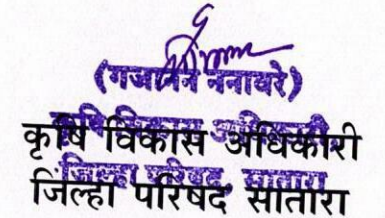 (गजानन ननावरे)
कृषि विकास अधिकारी
जिल्हा परिषद सातारा
कृषि विकास अधिकारी,
जिल्हा परिषद, सातारा